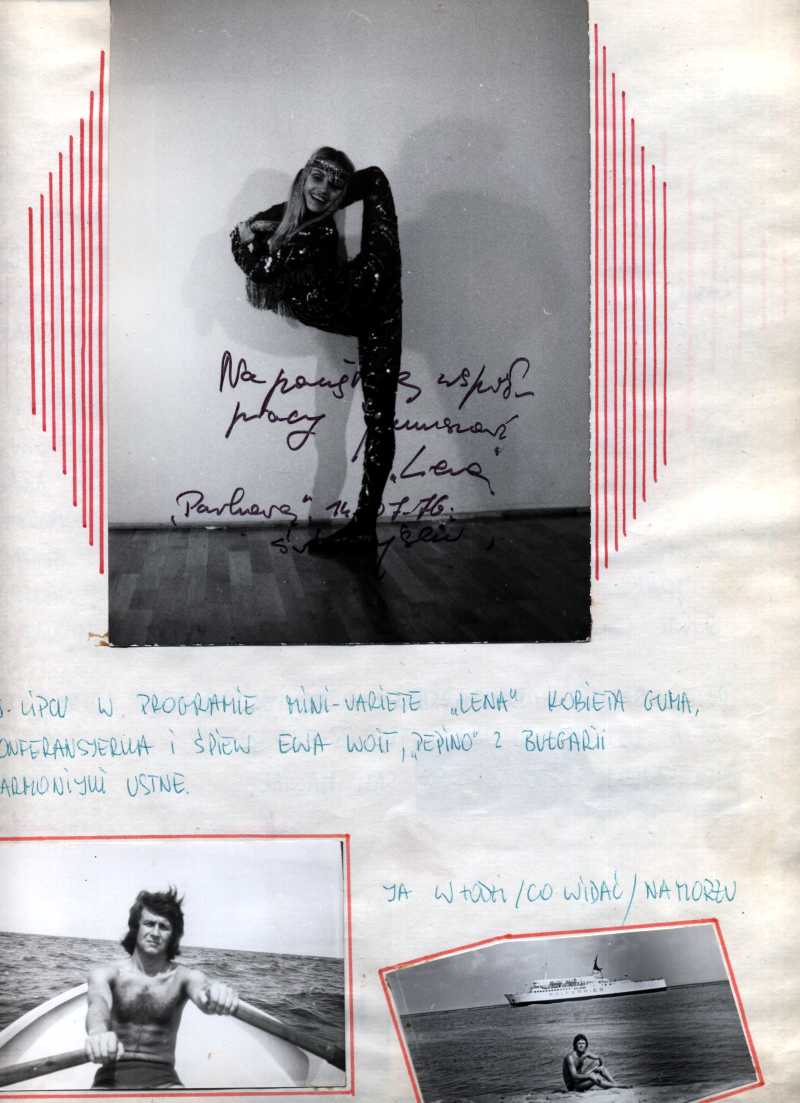 Na pamiątkę współ-
pracy
„Lena"
14.07.76.
LIPCU W PROGRAMIE MINI-VARIETE „LENA" KOBIETA GUMA,
ONFERANSJERKA I ŚPIEW EWA WOIT, „PEPINO" Z BUŁGARII
ARMONIJKI USTNE.
JA W ŁODZI /CO WIDAĆ/ NA MORZU